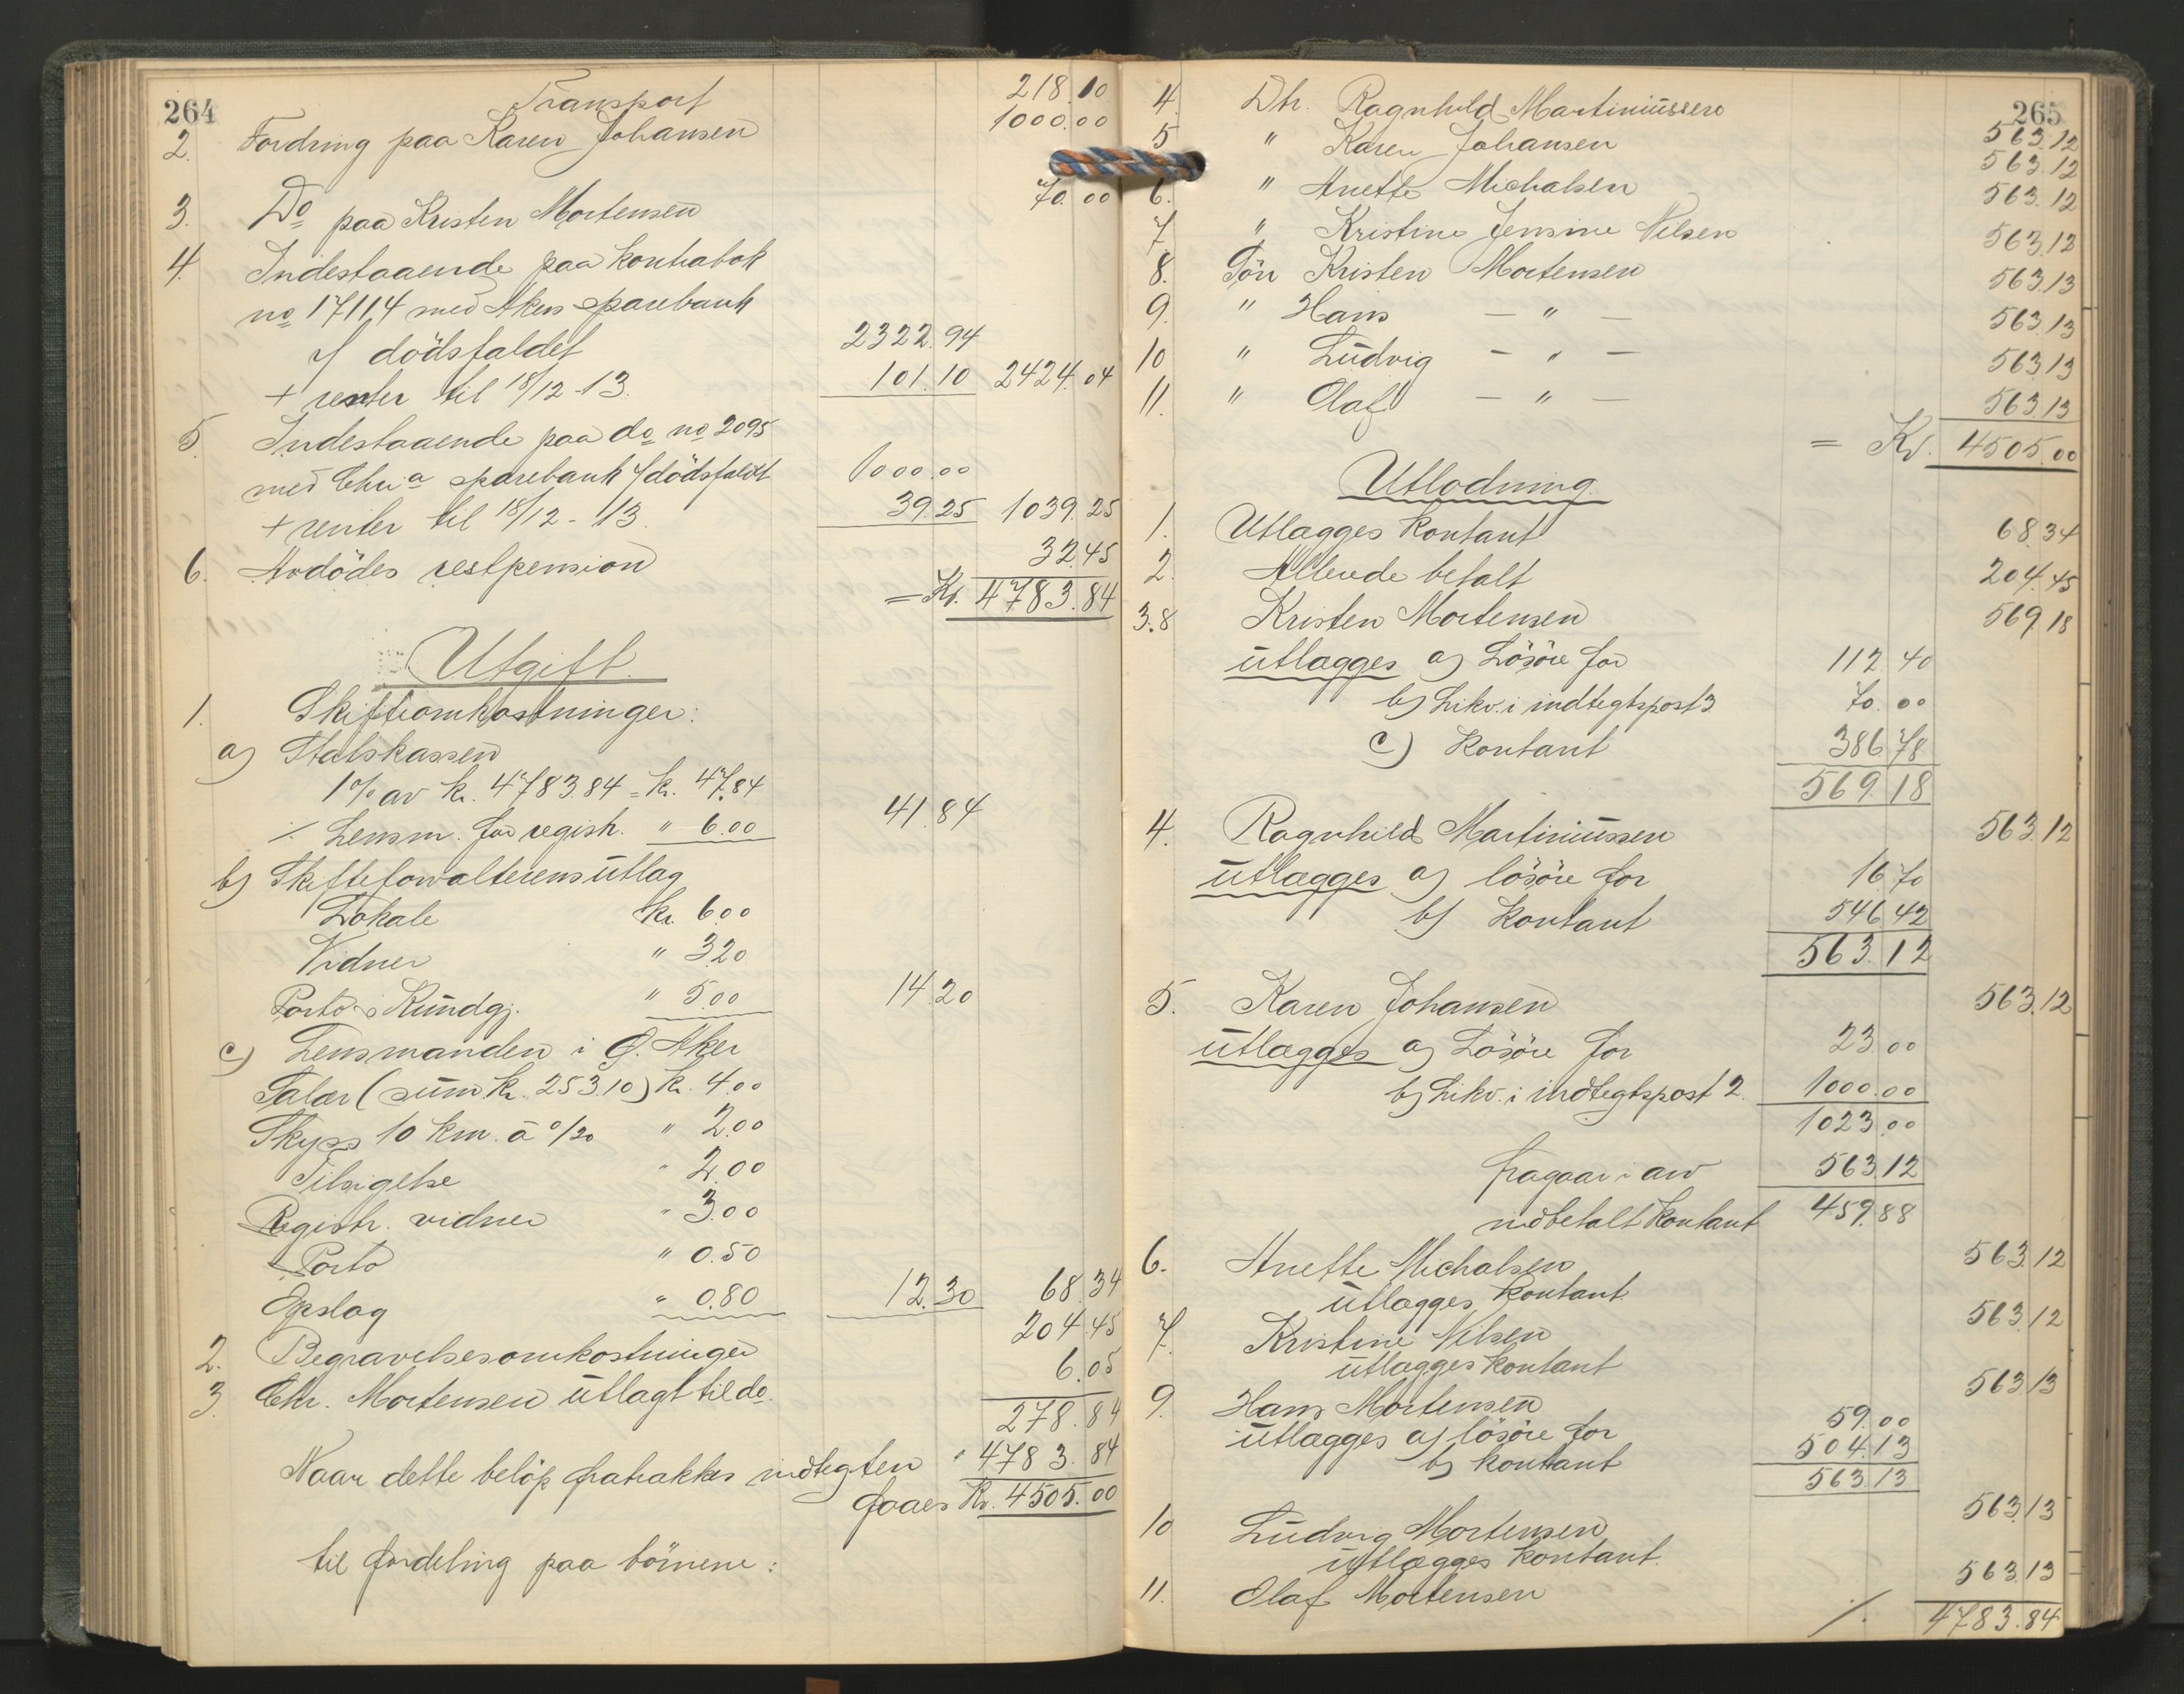 264
Transport 218.10
2. Fordring paa Karen Johansen 1000.00
3. Do paa Kristen Mortensen 70.00
4. Indestaaende paa kontrabok
no 17114 med Akers sparebank
v/ dödsfaldet 2322.94
+ renter til 18/12-13. 101.10 2424.04
5 Indestaaende paa do no 2095
med Chra sparebank v/dödsfaldt 1000.00
+ renter til 18/12-13. 39.25 1039.25
6. Avdödes restpension 32.45
= Kr. 4783.84
Utgift.
1. Skifteomkostninger:
a) Statskassen
1% av kr. 4783.84 = kr. 47.84
÷ Lensm. for registr. " 6.00 41.84
b) Skifteforvalterens utlæg
Lokale kr. 6.00
Vidner " 3.20
Porto o Kundgj. " 5.00 14.20
c) Lensmanden i Ø. Aker
Salær (sum kr. 253.10) kr. 4.00
Skyss 10 km. à 0/20 " 2.00
Tilsigelse " 2.00
Registr. vidner " 3.00
Porto " 0.50
Opslag " 0.80 12.30 68.34
2. Begravelsesomkostninger 204.45
3. Chr. Mortensen utlagt til do. 6.05
278.84
Naar dette beløp fratrækkes indtegten " 4783.84
faaes Kr. 4505.00
til fordeling paa börnene:
265
4. Dtr. Ragnhild Martiniussen 563.12
5 " Karen Johansen 563.12
6. " Anette Michalsen 563.12
7. " Kristine Jensine Nilsen 563.12
8. Sön Kristen Mortensen 563.13
9. " Hans — " — 563.13
10 " Ludvig — " — 563.13
11. " Olaf — " — 563.13
= Kr. 4505.00
Utlodning.
1. Utlægges kontant 68.34
2. Allerede betalt 204.45
3.8 Kristen Mortensen 569.18
utlægges a) Lösöre for 112.40
b) Likv. i indtegtspost 3 70.00
c) Kontant 386.78
569.18
4. Ragnhild Martiniussen 563.12
utlægges a) lösöre for 16.70
b) kontant 546.42
563.12
5. Karen Johansen 563.12
utlægges a) Lösöre for 23.00
b) Likv. i indtegtspost 2. 1000.00
1023.00
fragaar i arv 563.12
indbetalt kontant 459.88
6. Anette Michalsen 563.12
utlægges kontant.
7. Kristine Nilsen 563.12
utlægges kontant
9. Hans Mortensen 563.13
utlægges a) lösöre for 59.00
b) kontant 504.13
563.13
10 Ludvig Mortensen 563.13
utlægges kontant.
11. Olaf Mortensen 563.13
./. 4783.84